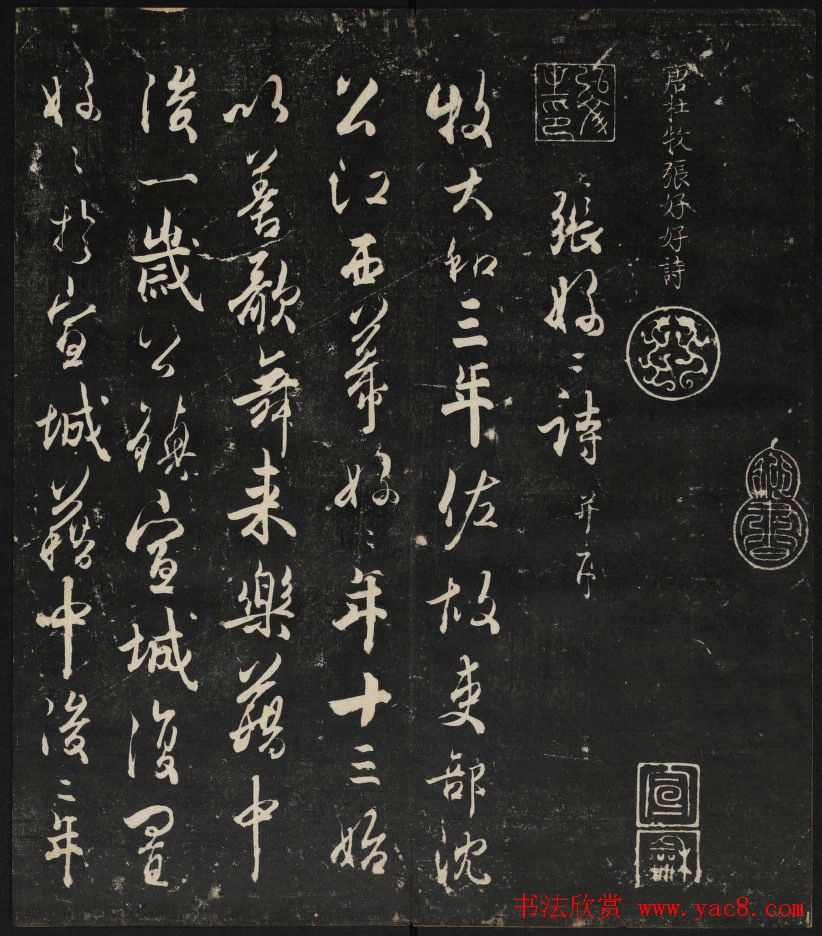 唐杜牧張好好詩
張好〻詩并序
牧大和三年佐故吏部沈
公江西幕好〻年十三始
以善歌舞来樂籍中
後一歲公鎮宣城復置
好〻於宣城籍中後二年
宣和
书法欣赏 www.yac8.com